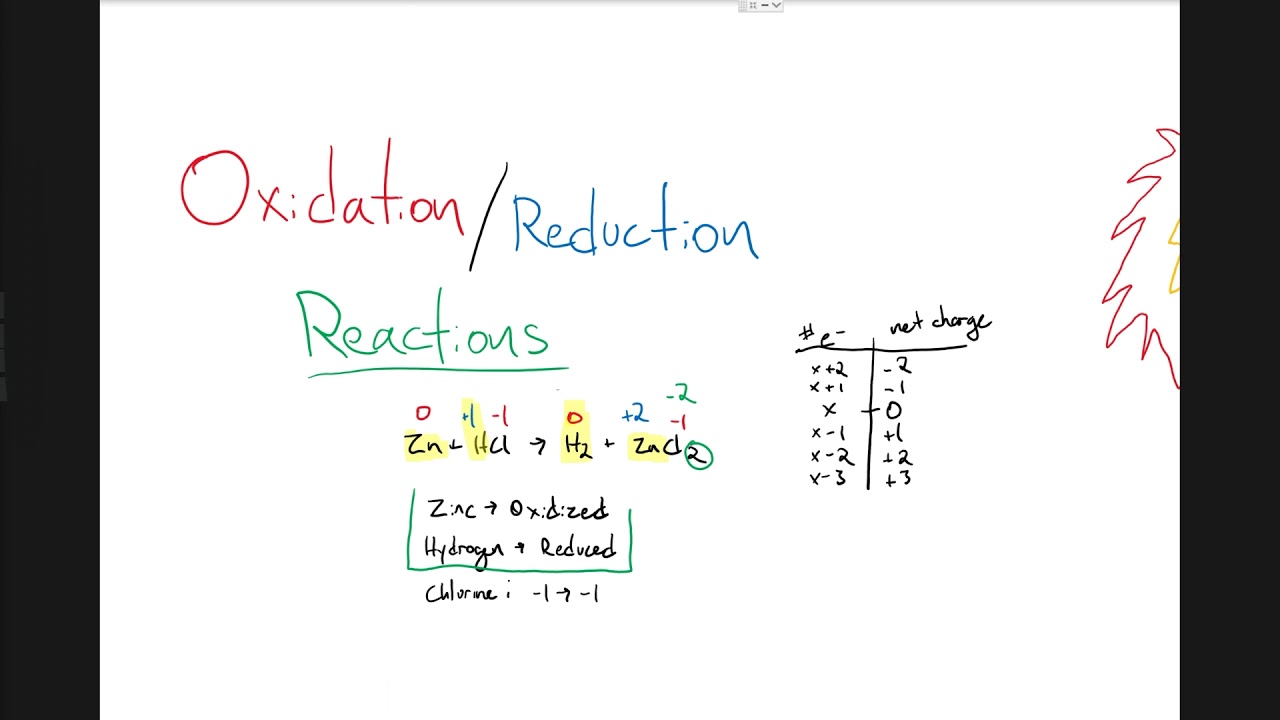 Oxidation/Reduction
Reactions
#e- net charge
x+2 -2
x+1 -1
x 0
x-1 +1
x-2 +2
x-3 +3
-2
0 +1 -1 0 +2 -1
Zn + HCl → H2 + ZnCl2
Zinc → Oxidized
Hydrogen → Reduced
Chlorine: -1 → -1